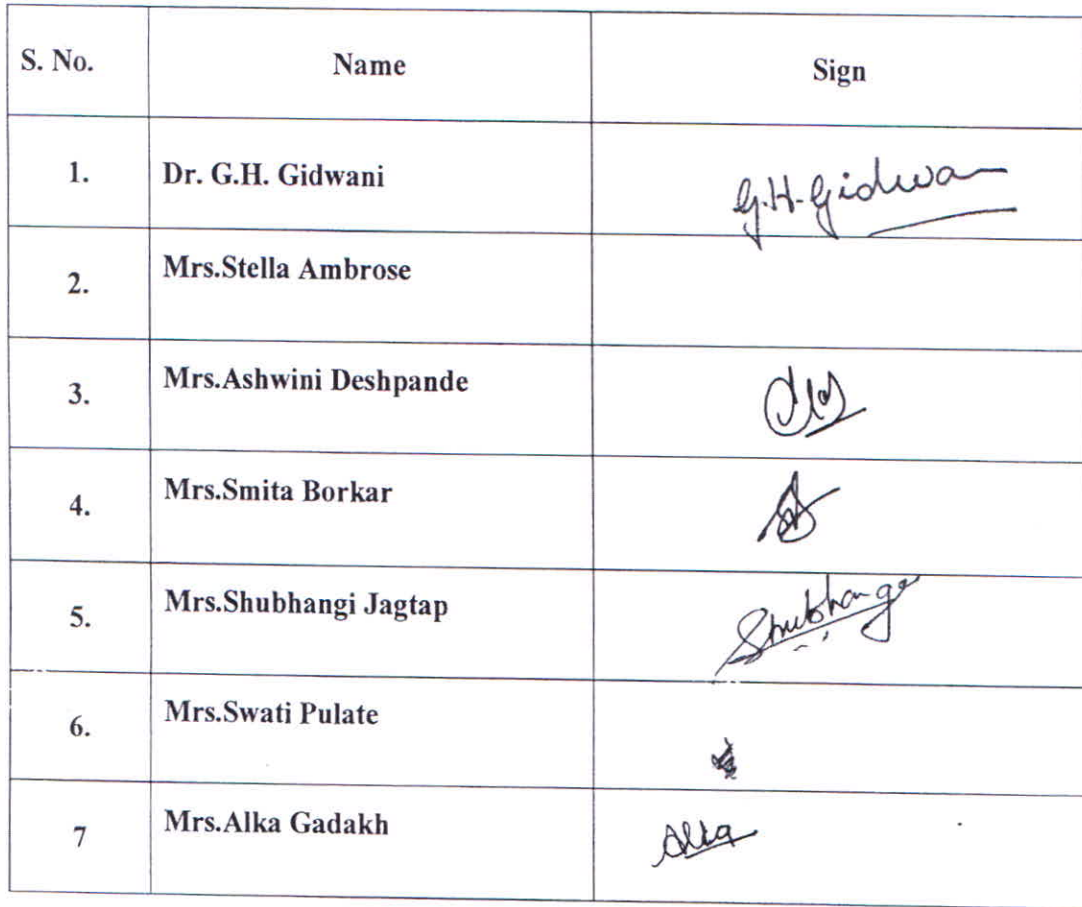 S. No. Name Sign
1. Dr. G.H. Gidwani G.H. Gidwani
2. Mrs.Stella Ambrose
3. Mrs.Ashwini Deshpande
4. Mrs.Smita Borkar
5. Mrs.Shubhangi Jagtap Shubhangi
6. Mrs.Swati Pulate
7 Mrs.Alka Gadakh Alka